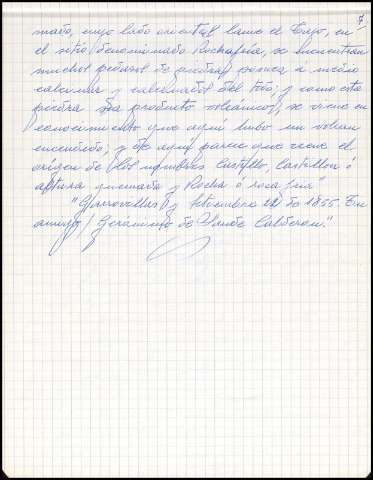 7
mado, cuyo lado oriental lame el Tajo, en
el sitio denominado Rochafría, se encuentran
muchos pedazos de piedras pómez á medio
calcinar y calcinadas del todo; y como esta
piedra es producto volcánico, se viene en
conocimiento que aquí hubo un volcan
encendido; y de aquí parece que viene el
orígen de los nombres Castillo, Castellon ó
altura quemada y Rocha ó roca fría"
"Garrovillas y Setiembre 12 de 1855. Su
amigo/ Gerónimo de Sande Calderon."